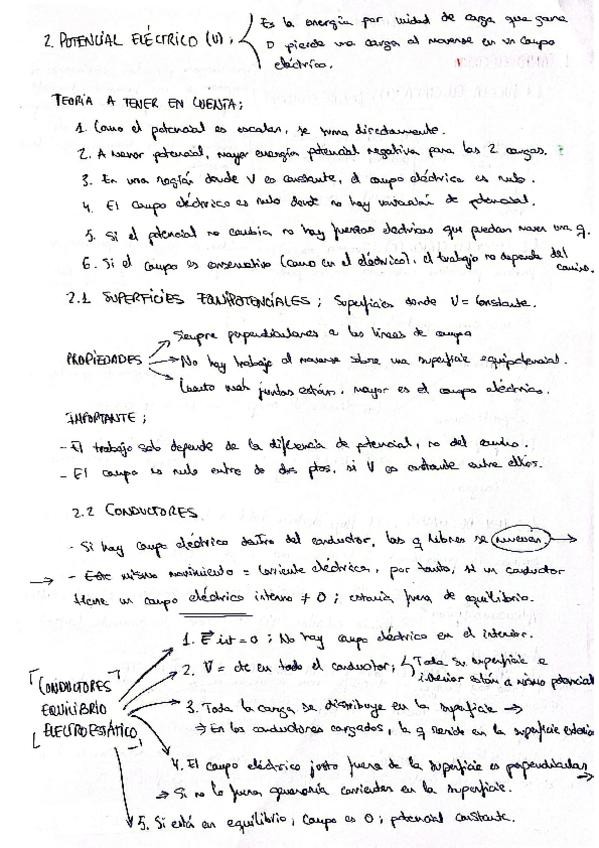 2. POTENCIAL ELÉCTRICO (U);
Es la energía por unidad de carga que gana
o pierde una carga al moverse en un campo
eléctrico.
TEORÍA A TENER EN CUENTA;
1. Como el potencial es escalar, se suma directamente.
2. A menor potencial, mayor energía potencial negativa para las 2 cargas. ?
3. En una región donde V es constante, el campo eléctrico es nulo.
4. El campo eléctrico es nulo donde no hay variación de potencial.
5. Si el potencial no cambia no hay fuerzas eléctricas que puedan mover una q.
6. Si el campo es conservativo (como en el eléctrico), el trabajo no depende del
camino.
2.1 SUPERFICIES EQUIPOTENCIALES; Superficies donde V = Constante.
PROPIEDADES
Siempre perpendiculares a las líneas de campo
No hay trabajo al moverse sobre una superficie equipotencial.
Cuanto más juntas están, mayor es el campo eléctrico.
IMPORTANTE;
- El trabajo solo depende de la diferencia de potencial, no del camino.
- El campo es nulo entre do dos ptos, si V es constante entre ellos.
2.2 CONDUCTORES
- Si hay campo eléctrico dentro del conductor, las q libres se moverán →
→ - Este mismo movimiento = Corriente eléctrica, por tanto, si un conductor
tiene un campo eléctrico interno ≠ 0; estaría fuera de equilibrio.
CONDUCTORES
EQUILIBRIO
ELECTROESTÁTICO
1. E int = 0; No hay campo eléctrico en el interior.
2. V = cte en todo el conductor; Toda su superficie e
interior están a mismo potencial
3. Toda la carga se distribuye en la superficie →
→ En los conductores cargados, la q reside en la superficie exterior
4. El campo eléctrico justo fuera de la superficie es perpendicular →
→ Si no lo fuera generaría corrientes en la superficie.
5. Si está en equilibrio; Campo es 0; potencial constante.